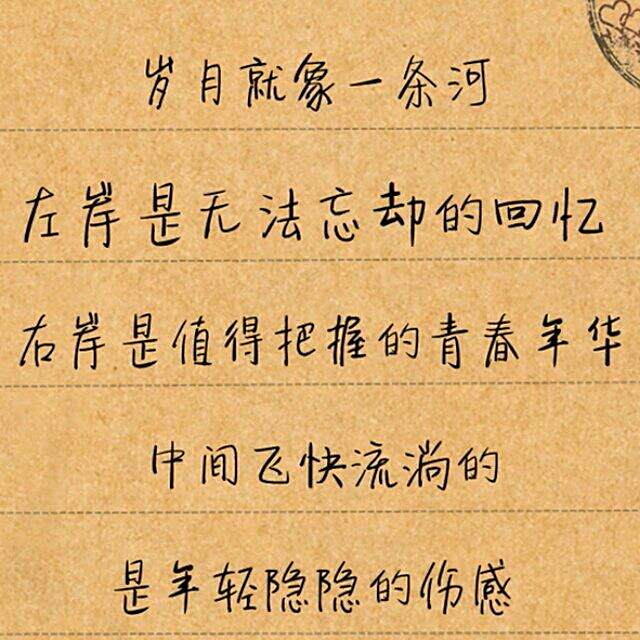 岁月就象一条河
左岸是无法忘却的回忆
右岸是值得把握的青春年华
中间飞快流淌的
是年轻隐隐的伤感